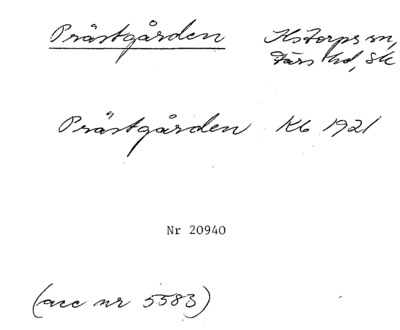 Prästgården Ilstorps sn,
Färs hd, Sk
Prästgården Kb 1921
Nr 20940
(acc nr 5583)